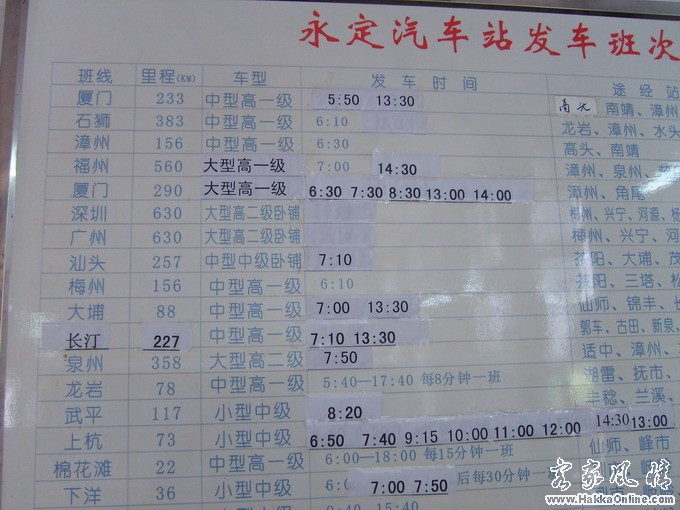 永定汽车站发车班次
班线 里程(KM) 车型 发车时间 途经站
厦门 233 中型高一级 5:50 13:30 南靖、漳州
石狮 383 中型高一级 6:10 龙岩、漳州、水头
漳州 156 中型高一级 6:30 高头、南靖
福州 560 大型高一级 7:00 14:30 漳州、泉州、
厦门 290 大型高一级 6:30 7:30 8:30 13:00 14:00 漳州、角尾
深圳 630 大型高二级卧铺 梅州、兴宁、河源、
广州 630 大型高二级卧铺 梅州、兴宁、
汕头 257 中型中级卧铺 7:10 茶阳、大埔、茂
梅州 156 中型高一级 6:10 茶阳、三塔、松
大埔 88 中型高一级 7:00 13:30 仙师、锦丰、
长汀 227 中型高一级 7:10 13:30 郭车、古田、新泉、
泉州 358 大型高二级 7:50 适中、漳州、
龙岩 78 中型高一级 5:40—17:40 每8分钟一班 湖雷、抚市、
武平 117 小型中级 8:20 丰稔、兰溪、
上杭 73 小型中级 6:50 7:40 9:15 10:00 11:00 12:00 14:30 13:00
仙师、峰市
棉花滩 22 中型高一级 6:00—18:00 每15分钟一班 仙师、
下洋 36 小型中级 7:00 7:50 后每30分钟一班
15:40
客家风情
www.HakkaOnline.com